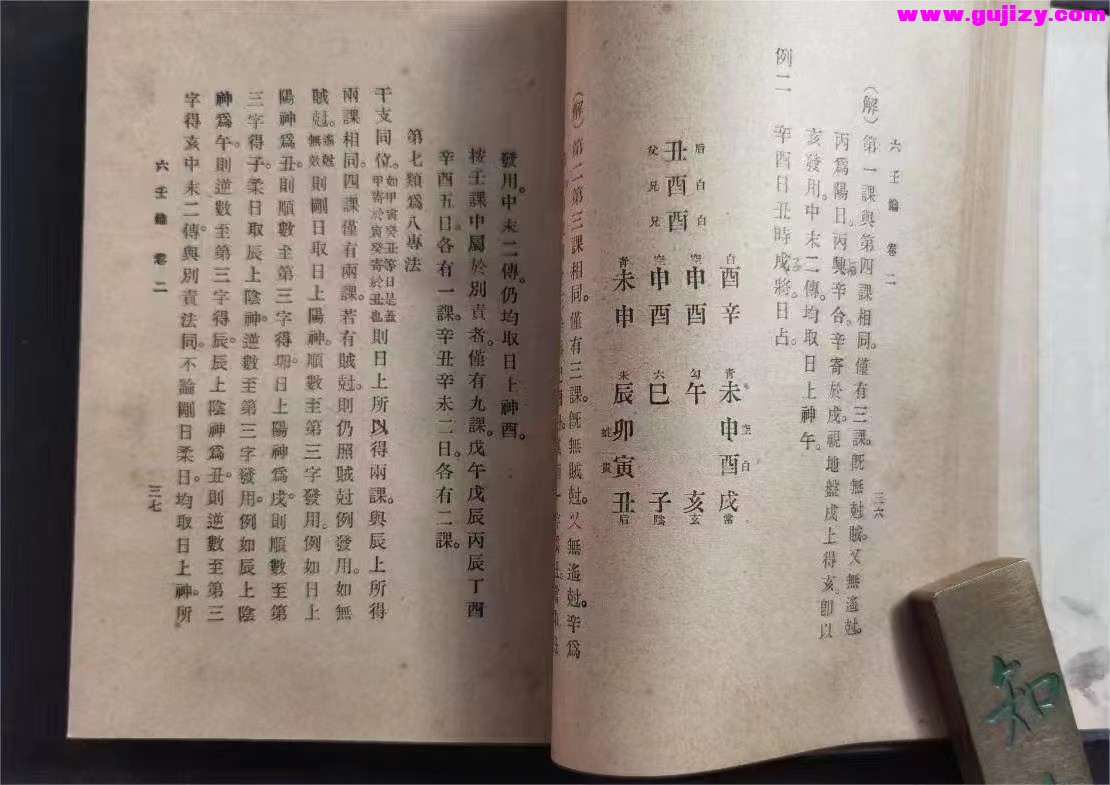 www.gujizy.com
六壬鑰 卷二
三六
(解)第一課與第四課相同。僅有三課。旣無尅賊。又無遙尅。
丙爲陽日。丙與辛合。辛寄於戌。視地盤戌上得亥。卽以
亥發用。中末二傳。均取日上神午。
例二 辛酉日丑時戌將。日占。
后 白 白
丑酉酉
父兄兄
白 空 空 青
酉申申未
辛酉酉申
青 勾 六 朱
未午巳辰
申 空 卯 蛇
酉 白 寅 貴
戌亥子丑
常 玄 陰 后
(解)第二第三課相同。僅有三課。旣無賊尅。又無遙尅。辛爲
發用。中末二傳。仍均取日上神酉。
按壬課中屬於別責者。僅有九課。戊午戊辰丙辰丁酉
辛酉五日。各有一課。辛丑辛未二日。各有二課。
第七類爲八專法
干支同位。如甲寅癸丑等日是。蓋甲寄於寅癸寄於丑也則日上所以得兩課。與辰上所得
兩課相同。四課僅有兩課。若有賊尅。則仍照賊尅例發用。如無
賊尅。遙尅無效則剛日取日上陽神。順數至第三字發用。例如日上
陽神爲丑。則順數至第三字得卯。日上陽神爲戌。則順數至第
三字得子。柔日取辰上陰神。逆數至第三字發用。例如辰上陰
神爲午。則逆數至第三字得辰。辰上陰神爲丑。則逆數至第三
字得亥。中末二傳。與別責法同。不論剛日柔日。均取日上神。所
六壬鑰 卷二
三七